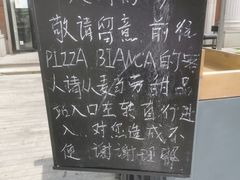 敬请留意 前往
PIZZA BIANCA的客
人请从麦当劳甜品
站入口左转直行进
入...对您造成不
便 谢谢理解